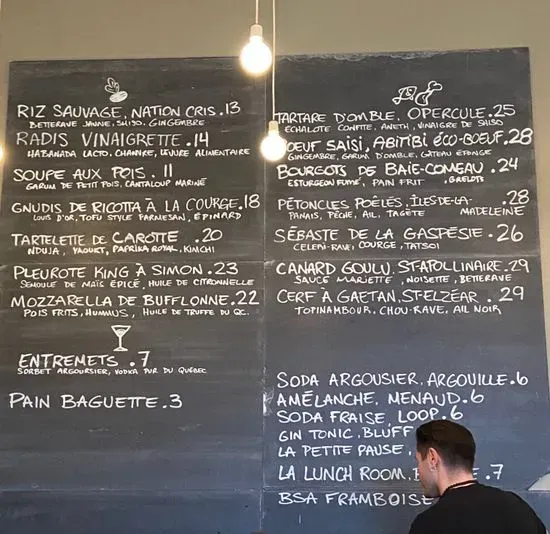 RIZ SAUVAGE, NATION CRIS. 13
BETTERAVE JAUNE, SHISO, GINGEMBRE
RADIS VINAIGRETTE. 14
HABANADA LACTO, CHANVRE, LEVURE ALIMENTAIRE
SOUPE AUX POIS. 11
GARUM DE PETIT POIS, CANTALOUP MARINÉ
GNUDIS DE RICOTTA À LA COURGE. 18
LOUIS D'OR, TOFU STYLE PARMESAN, ÉPINARD
TARTELETTE DE CAROTTE. 20
NDUJA, YAOURT, PAPRIKA ROYAL, KIMCHI
PLEUROTE KING À SIMON. 23
SEMOULE DE MAÏS ÉPICÉ, HUILE DE CITRONNELLE
MOZZARELLA DE BUFFLONNE. 22
POIS FRITS, HUMMUS, HUILE DE TRUFFE DU QC.
ENTREMETS. 7
SORBET ARGOUSIER, VODKA PUR DU QUÉBEC
PAIN BAGUETTE. 3
TARTARE D'OMBLE, OPERCULE. 25
ÉCHALOTE CONFITE, ANETH, VINAIGRE DE SHISO
BOEUF SAISI, ABITIBI ÉCO-BOEUF. 28
GINGEMBRE, GARUM D'OMBLE, GÂTEAU ÉPONGE
BOURGOTS DE BAIE-COMEAU. 24
ESTURGEON FUMÉ, PAIN FRIT, GRELOTS
PÉTONCLES POÊLÉS, ÎLES-DE-LA-MADELEINE 28
PANAIS, PÊCHE, AIL, TAGÈTE
SÉBASTE DE LA GASPÉSIE. 26
CELERI-RAVE, COURGE, TATSOI
CANARD GOULU, ST-APOLLINAIRE. 29
SAUCE MARIETTE, NOISETTE, BETTERAVE
CERF À GAETAN, ST-ELZÉAR. 29
TOPINAMBOUR, CHOU-RAVE, AIL NOIR
SODA ARGOUSIER, ARGOUILLE. 6
AMÉLANCHE, MENAUD. 6
SODA FRAISE, LOOP. 6
GIN TONIC, BLUFF
LA PETITE PAUSE,
LA LUNCH ROOM, 7
BSA FRAMBOISE